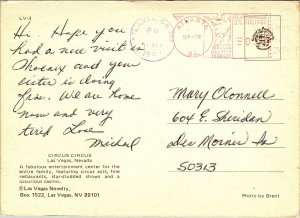 LV-3
Hi. Hope you
had a nice visit in
Phoenix and your
sister is doing
fine. We are home
now and very
tired Love
Michael
CIRCUS CIRCUS
Las Vegas, Nevada
A fabulous entertainment center for the
entire family, featuring circus acts, fine
restaurants, star-studded shows and a
luxurious casino.
© Las Vegas Novelty,
Box 1522, Las Vegas, NV 89101
PM
U.S. POSTAGE
Mary O'Connell
604 E. Sheridan
Des Moines Ia
50313
Photo by Brent